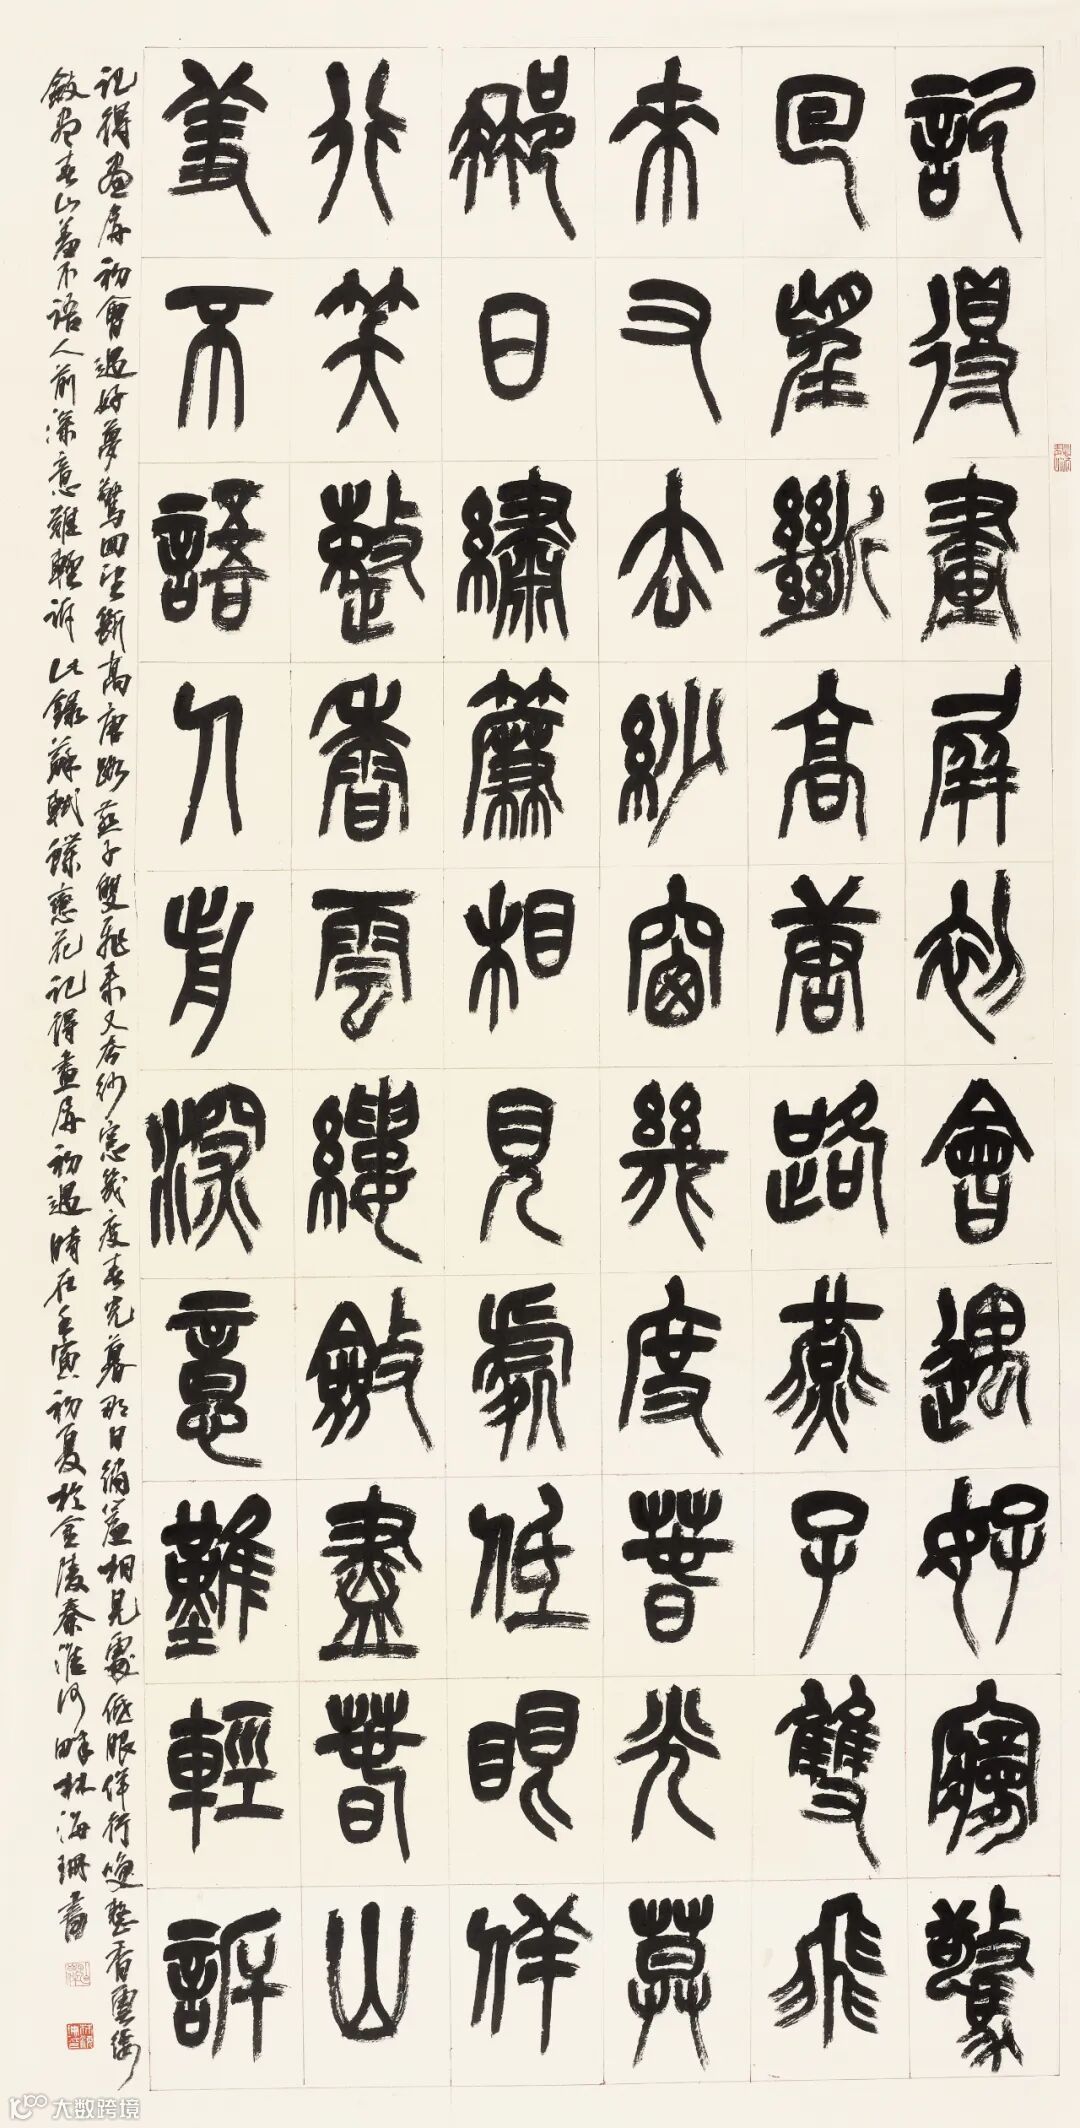 記得畫屏初會遇好夢驚
回望斷高唐路燕子雙飛
來又去紗窗幾度春光莫
那日繡簾相見處低眼佯
行笑整香雲縷斂盡春山
羞不語人前深意難輕訴
記得畫屏初會遇好夢驚回望斷高唐路燕子雙飛來又去紗窗幾度春光暮那日繡簾相見處低眼佯行笑整香雲縷
斂盡春山羞不語人前深意難輕訴 此錄蘇軾蝶戀花記得畫屏初遇時在壬寅初夏於金陵秦淮河畔林海珊書
大数跨境